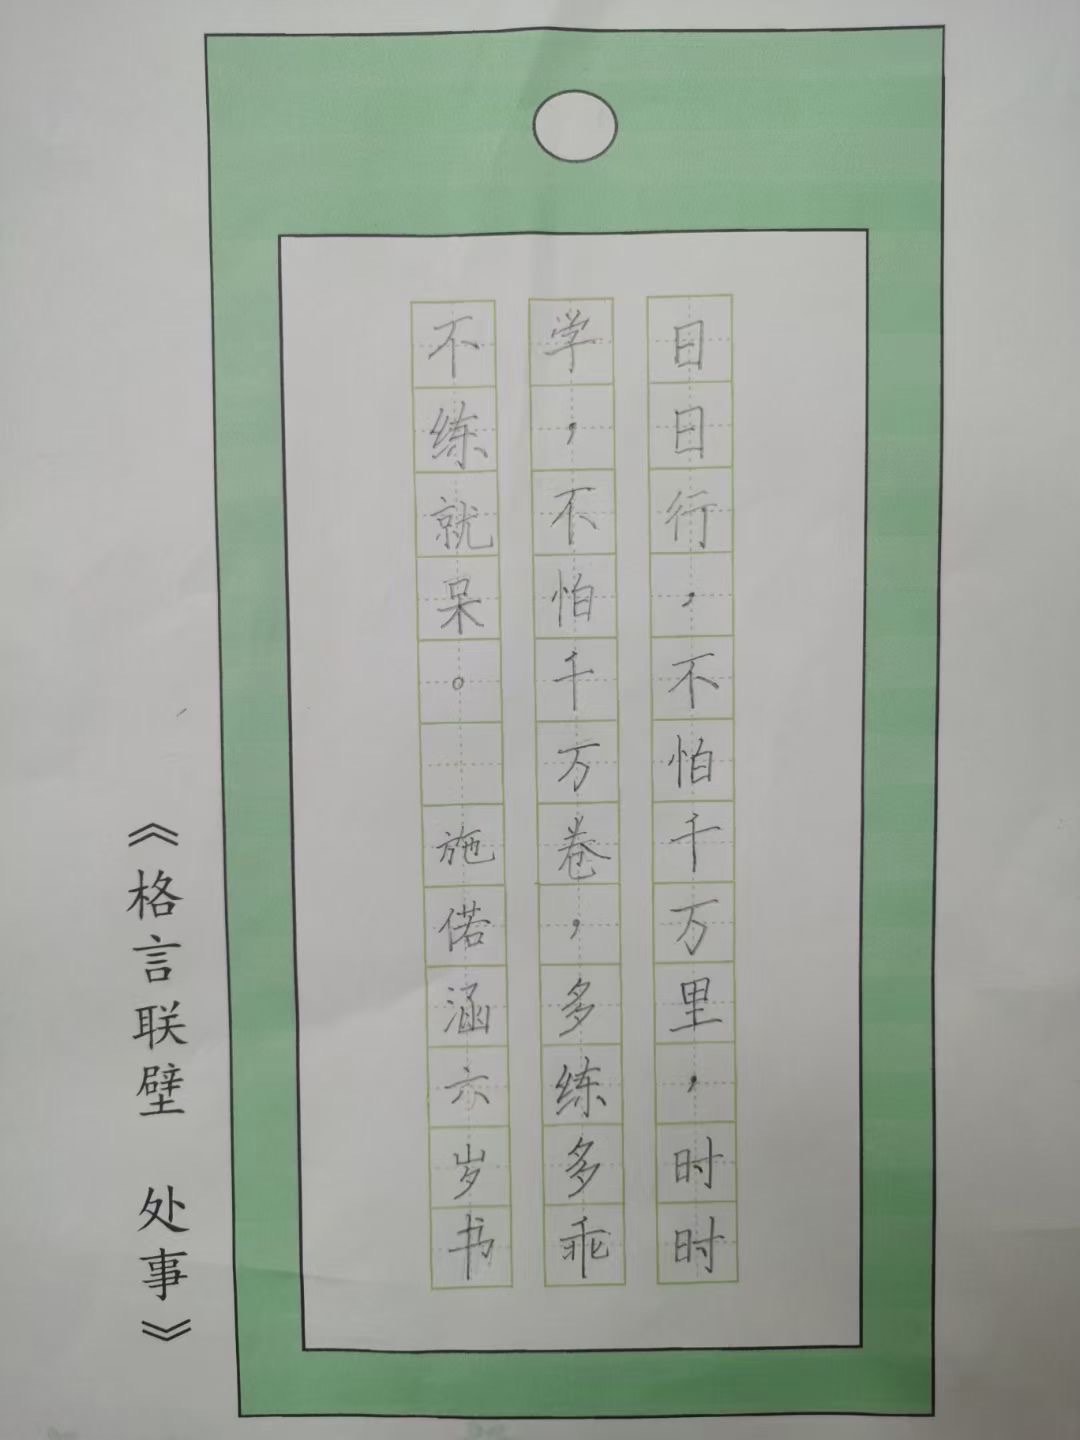 日日行，不怕千万里，时时
学，不怕千万卷，多练多乖
不练就呆。 施偌涵六岁书
《格言联璧 处事》